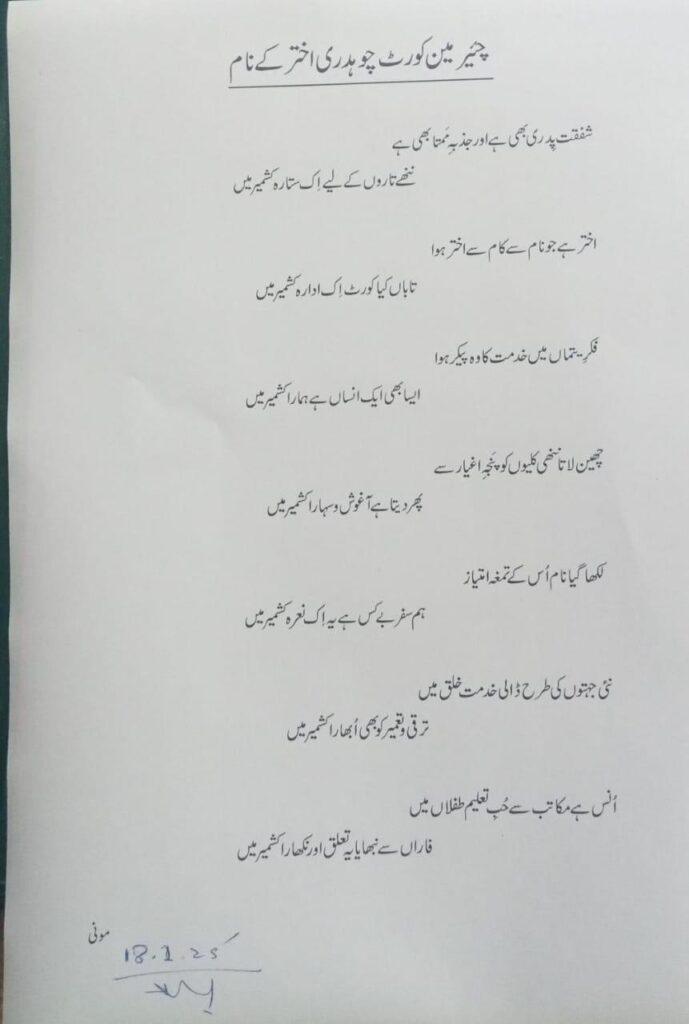 چئیر مین کورٹ چوہدری اختر کے نام
شفقت پِدری بھی ہے اور جذبہِ مَمتا بھی ہے
ننھے تاروں کے لیے اِک ستارہ کشمیر میں
اختر ہے جو نام سے کام سے اختر ہوا
تاباں کیا کورٹ اِک ادارہ کشمیر میں
فکرِ یتماں میں خدمت کا وہ پیکر ہوا
ایسا بھی ایک انساں ہے ہمارا کشمیر میں
چھین لاتا ننھی کلیوں کو پنجہِ اغیار سے
پھر دیتا ہے آغوش و سہارا کشمیر میں
لکھا گیا نام اُس کے تمغہ امتیاز
ہم سفر بے کس ہے یہ اِک نعرہ کشمیر میں
نئی جہتوں کی طرح ڈالی خدمت خلق میں
ترقی و تعمیر کو بھی اُبھارا کشمیر میں
اُنس ہے مکاتب سے حُبِ تعلیم طفلاں میں
فاراں سے نبھایا یہ تعلق اور نکھارا کشمیر میں
مونی
18.1.25